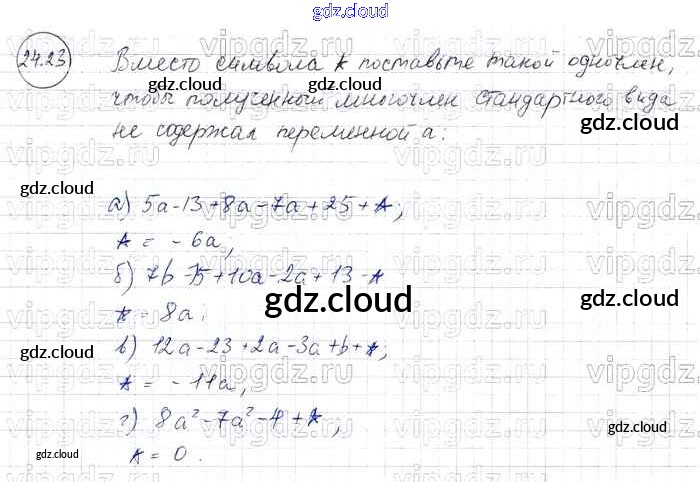 gdz.cloud
24.23 Вместо символа * поставьте такой одночлен,
чтобы полученный многочлен стандартного вида
не содержал переменной a:
а) 5a-13+8a-7a+25+*;
* = -6a,
б) 7b-15+10a-2a+13-*
* = 8a;
в) 12a-23+2a-3a+b+*;
* = -11a,
г) 8a²-7a²-4+*;
* = 0.
gdz.cloud
gdz.cloud
gdz.cloud
gdz.cloud
gdz.cloud
gdz.cloud
gdz.cloud
gdz.cloud
gdz.cloud
gdz.cloud